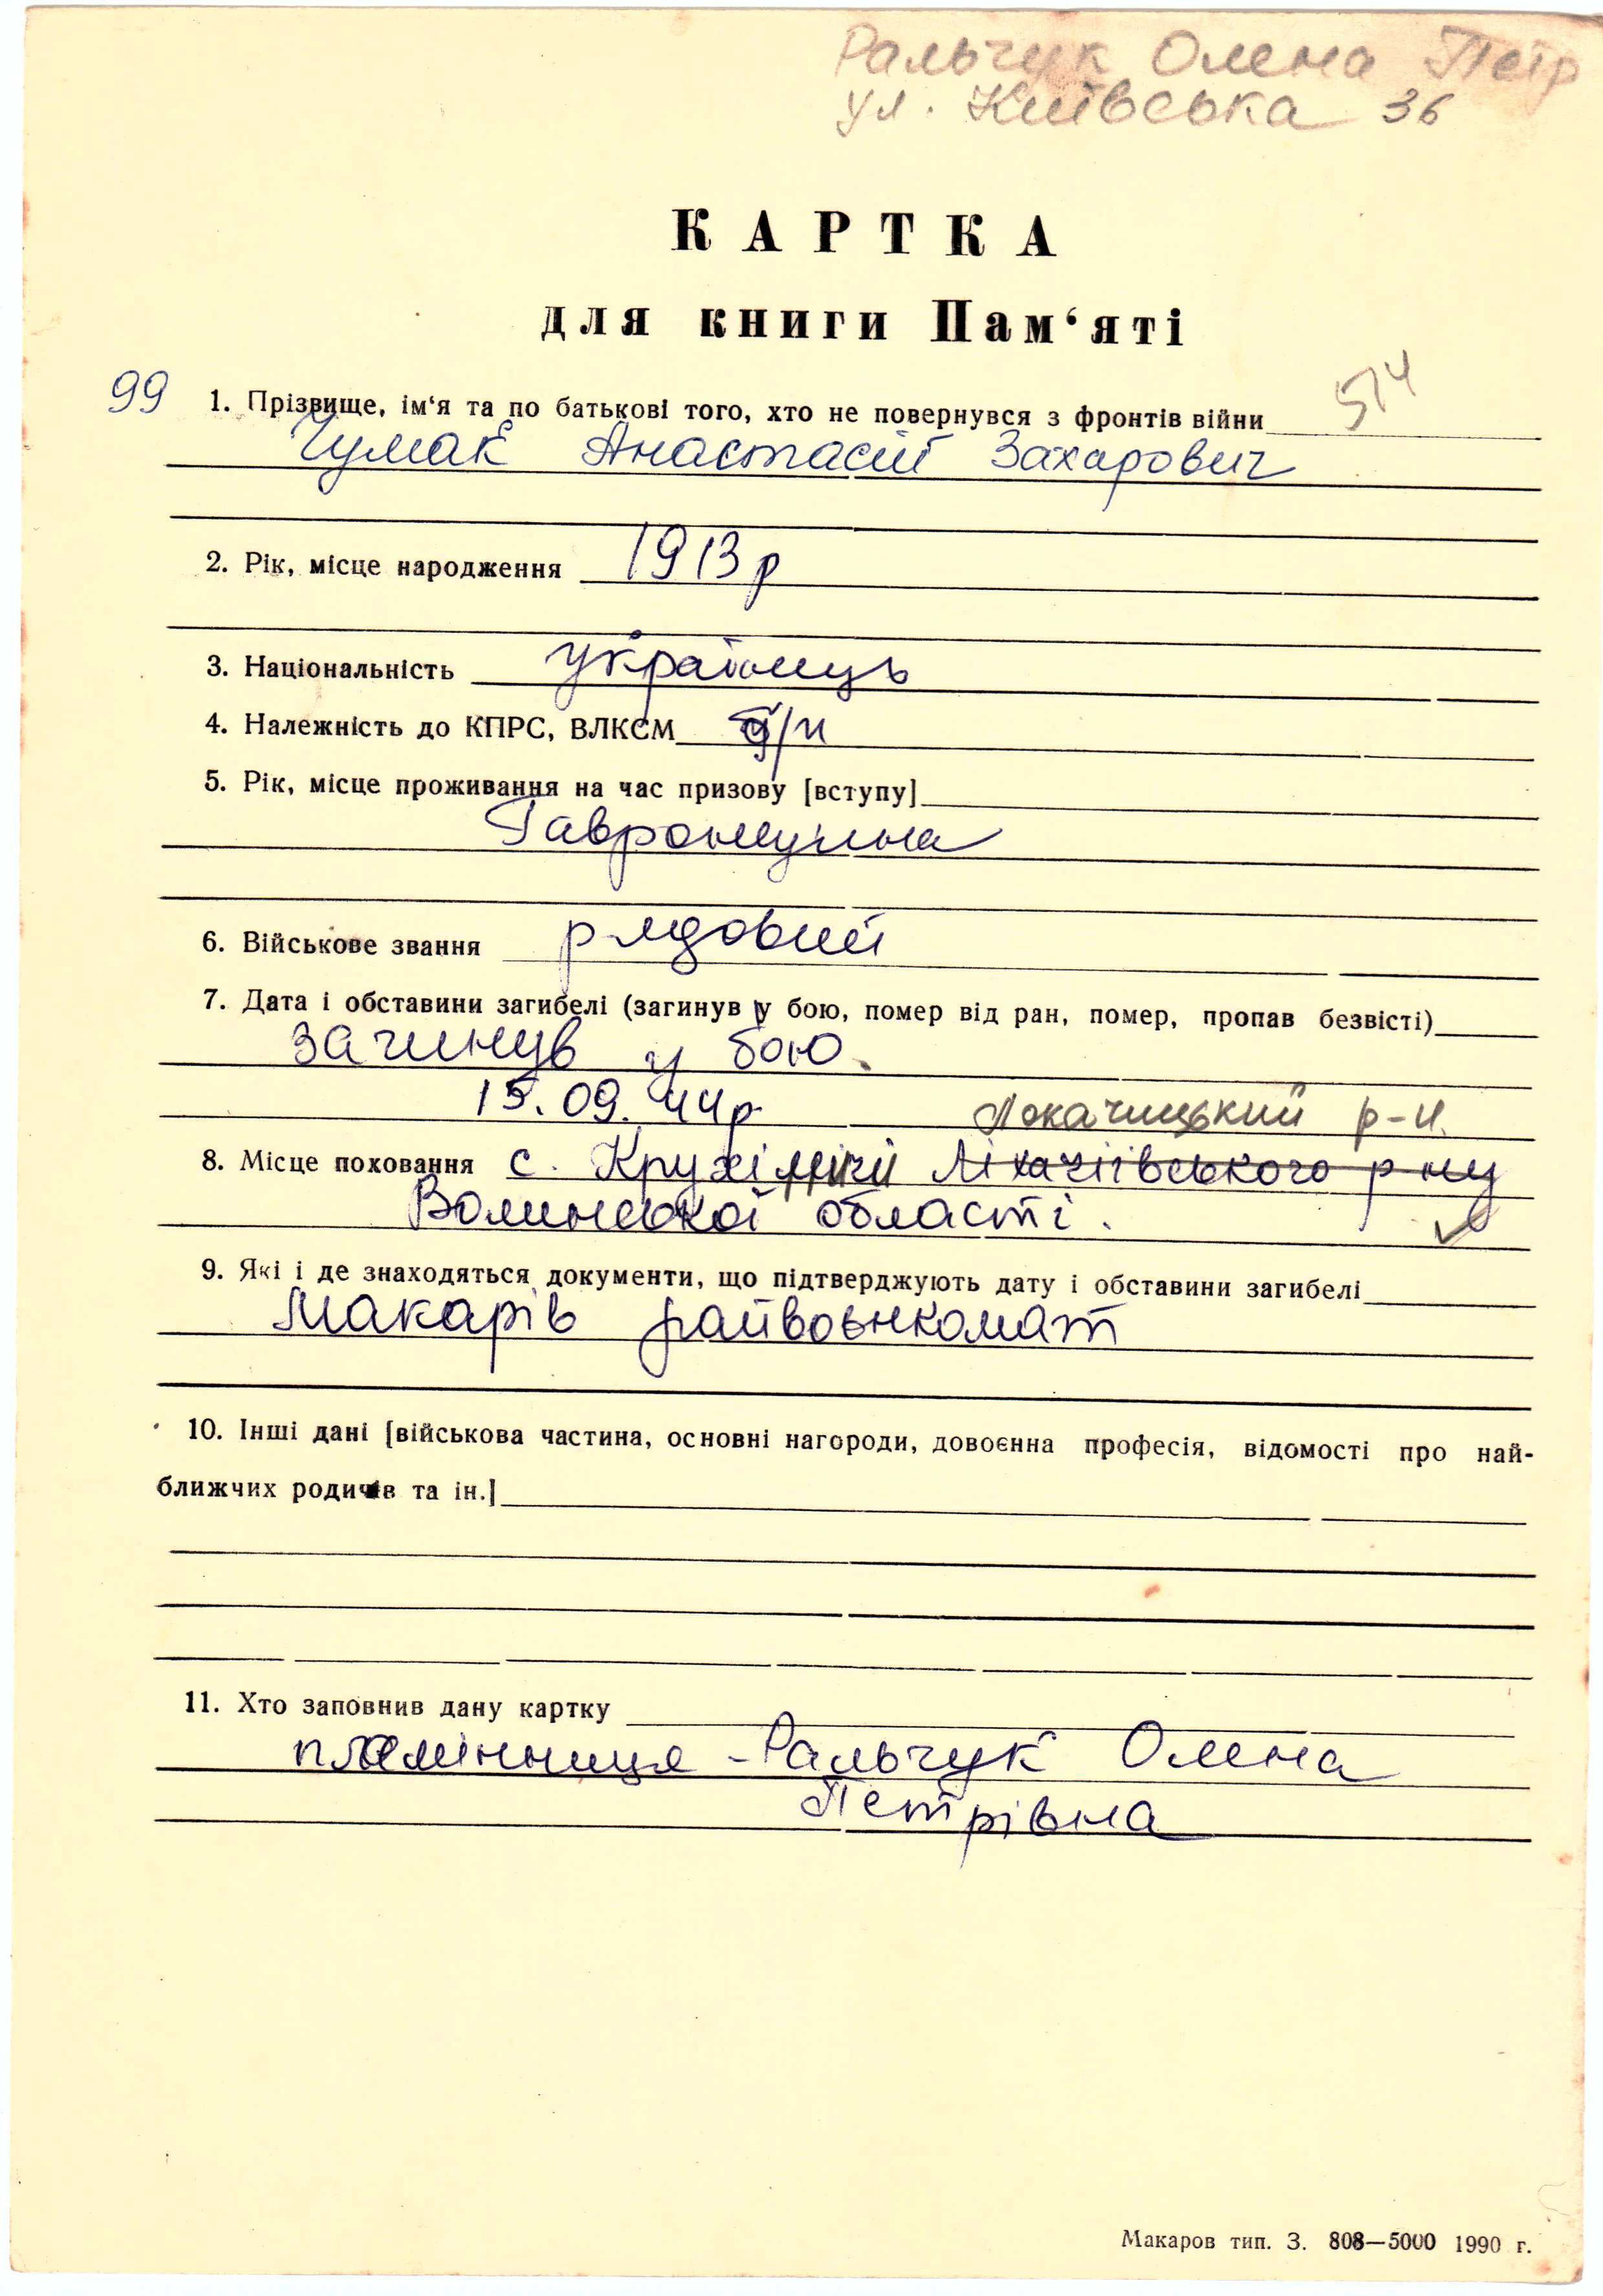 Ральчук Олена Петр
ул. Київська 36
КАРТКА
для книги Пам‘яті
99 1. Прізвище, ім‘я та по батькові того, хто не повернувся з фронтів війни 514
Чумак Анастасій Захарович
2. Рік, місце народження 1913 р
3. Національність українець
4. Належність до КПРС, ВЛКСМ б/п
5. Рік, місце проживання на час призову [вступу]
Гавронщина
6. Військове звання рядовий
7. Дата і обставини загибелі (загинув у бою, помер від ран, помер, пропав безвісті)
загинув у бою.
15.09.44р Локачицький р-н.
8. Місце поховання с. Ліхачіївського р-ну
Волинської області.
9. Які і де знаходяться документи, що підтверджують дату і обставини загибелі
Макарів райвоєнкомат
10. Інші дані [військова частина, основні нагороди, довоєнна професія, відомості про най-
ближчих родичів та ін.]
11. Хто заповнив дану картку
племінниця - Ральчук Олена
Петрівна
Макаров тип. З. 808—5000 1990 г.